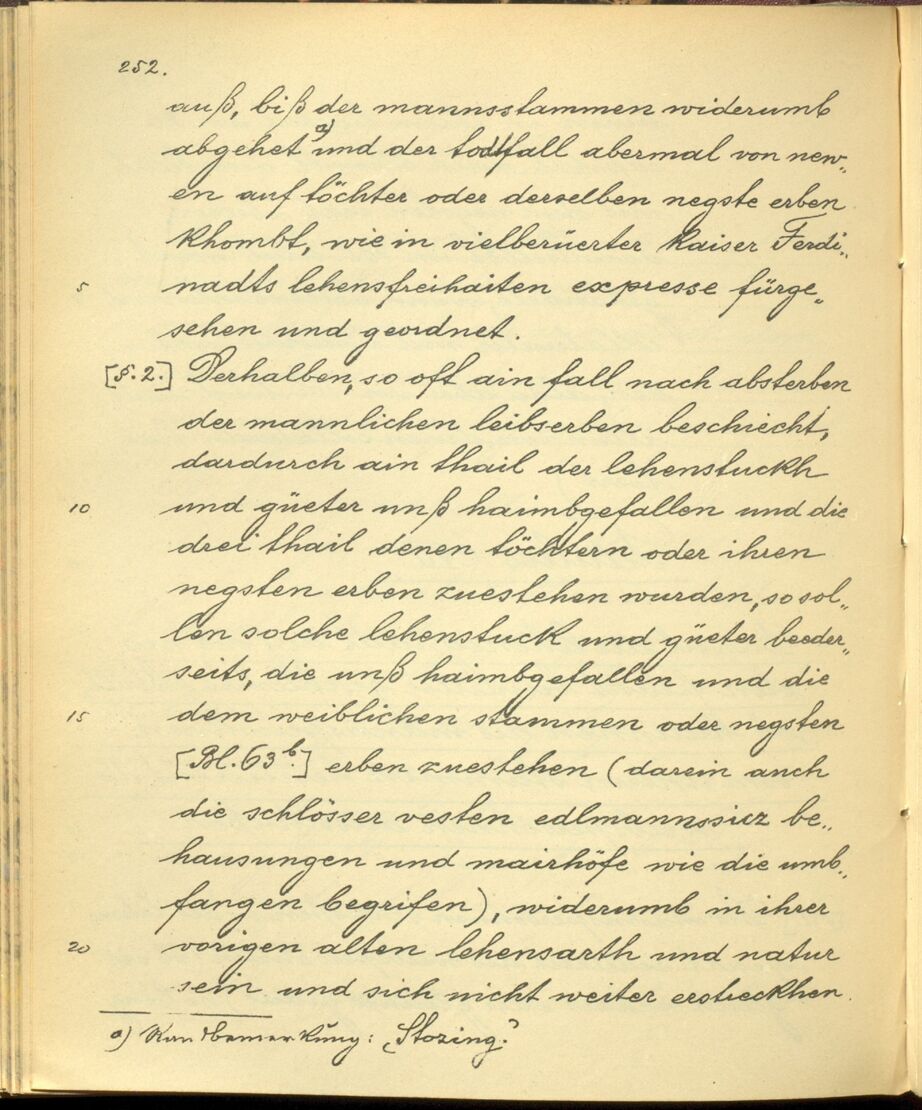 252.
auß, biß der mannsstammen widerumb
abgehet a) und der todtfall abermal von new„
en auf töchter oder derselben negste erben
khombt, wie in vielberüerter Kaiser Ferdi„
5 nadts lehensfreihaiten expresse fürge„
sehen und geordnet.
[§. 2.] Derhalben, so oft ain fall nach absterben
der mannlichen leibserben beschiecht,
dardurch ain thail der lehenstuckh
10 und güeter unß haimbgefallen und die
drei thail denen töchtern oder ihren
negsten erben zuestehen wurden, so sol„
len solche lehenstuck und güeter beeder„
seits, die unß haimbgefallen und die
15 dem weiblichen stammen oder negsten
[Bl. 63 b.] erben zuestehen (darein auch
die schlösser vesten edlmannssiz be„
hausungen und mairhöfe wie die umb„
fangen begrifen), widerumb in ihrer
20 vorigen alten lehensarth und natur
sein und sich nicht weiter erstreckhen.
a) Randbemerkung: „Stozing.“